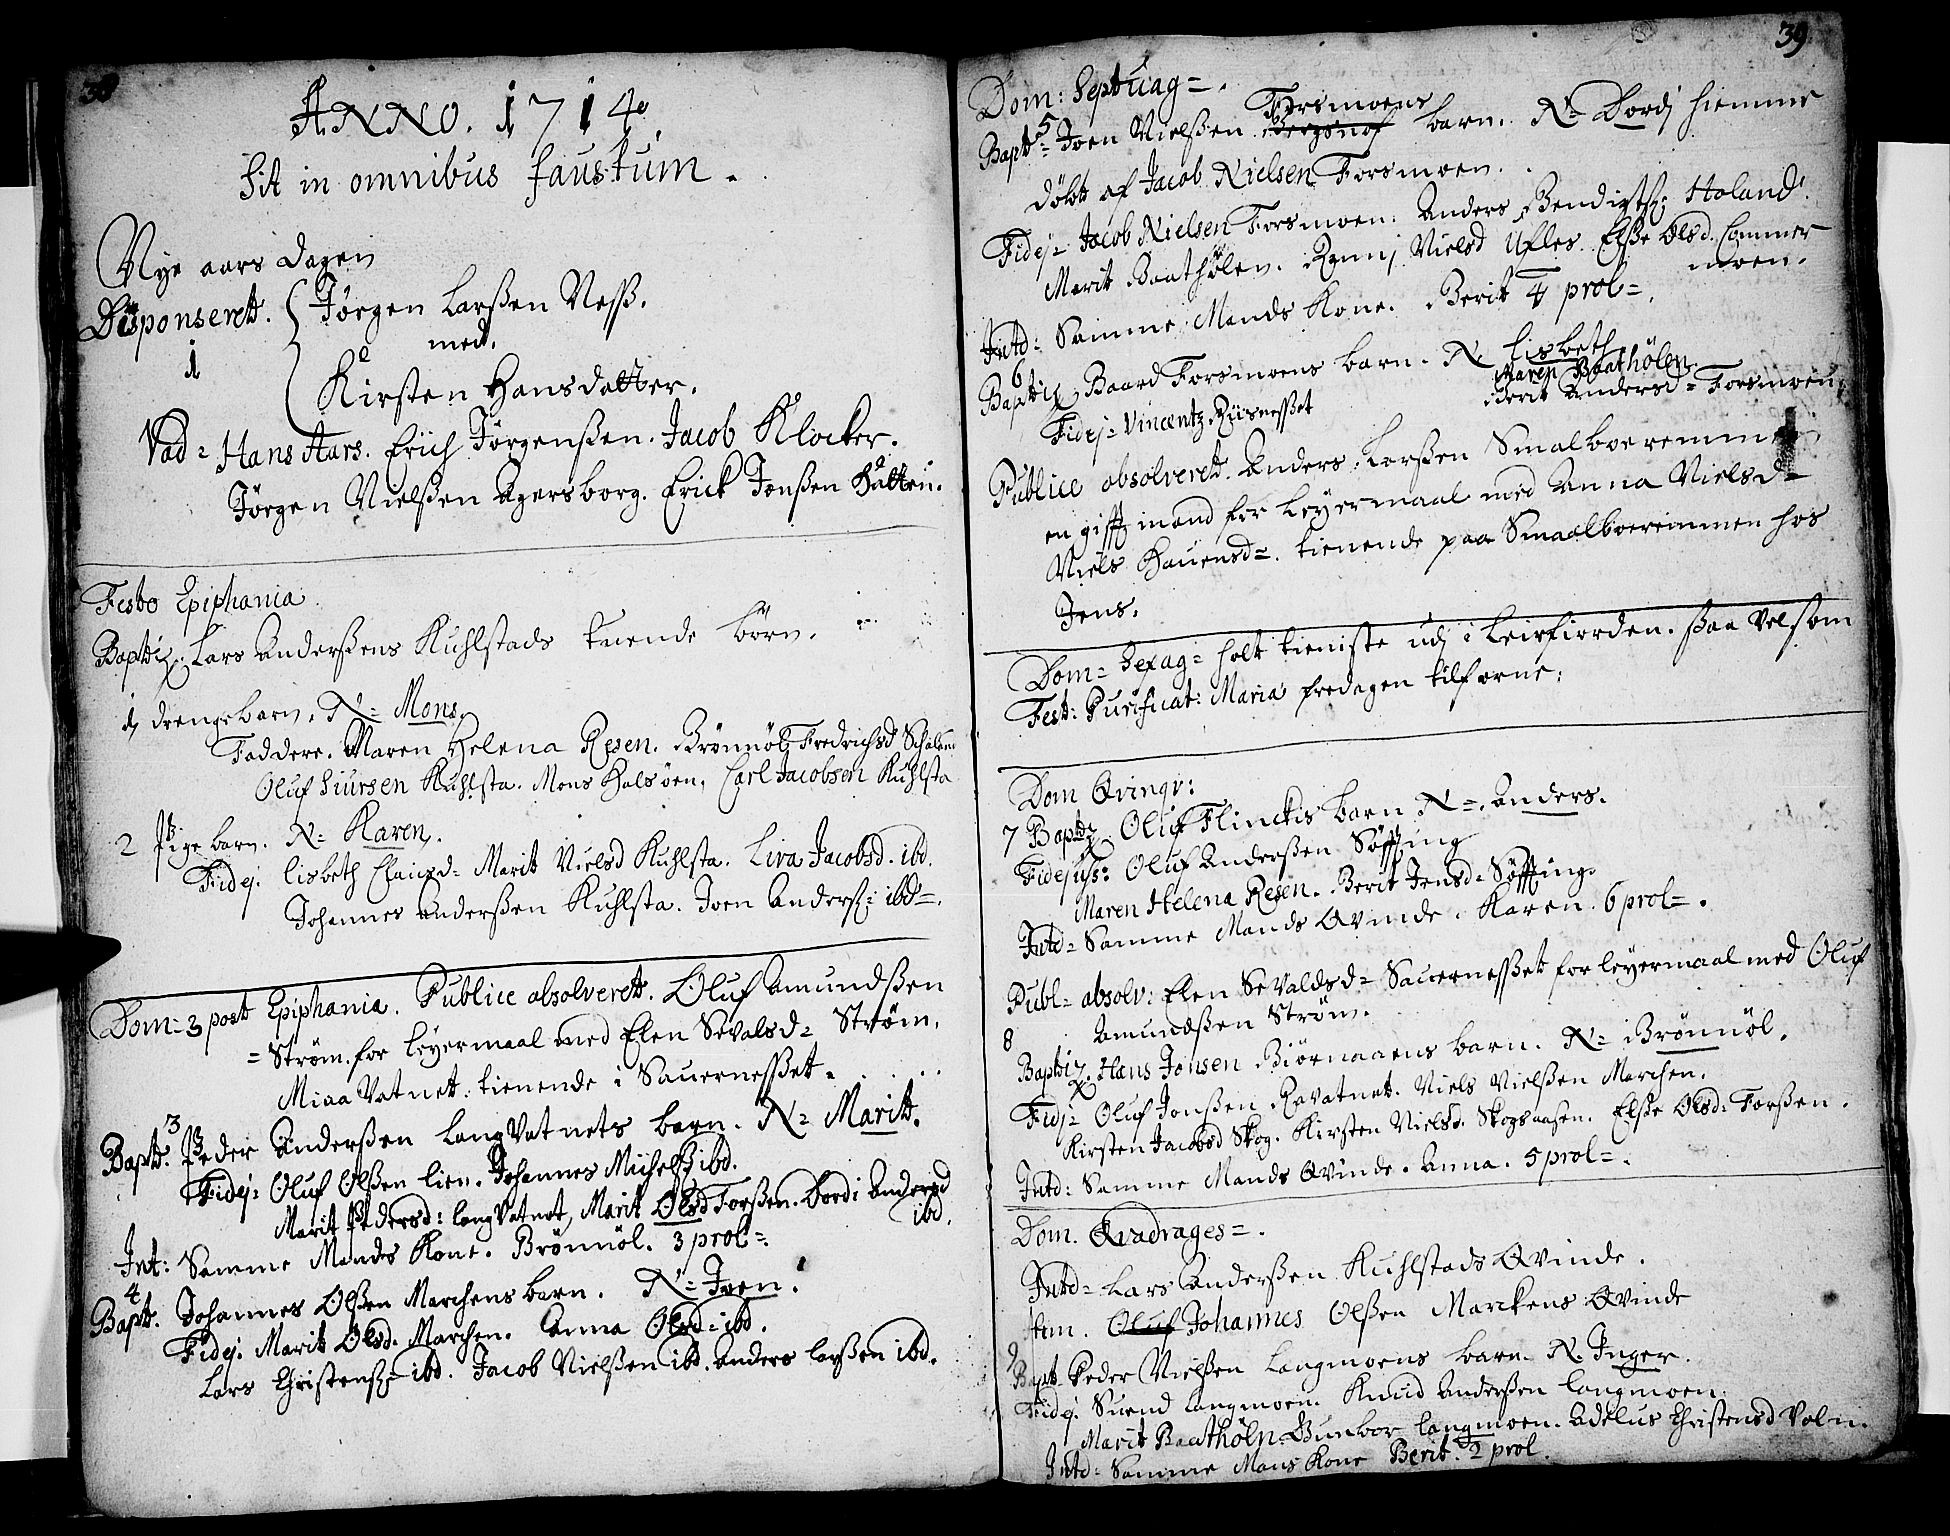 38
ANNO. 1714
Sit in omnibus faustum.
Nye aars Dagen
Disponseret. Jørgen Larßen Neß.
1 med.
Kirsten Hansdatter.
Vad= Hans Aars. Erich Jørgenßen. Jacob Klocker.
Jørgen Nielßen Agersborg. Erick Jonßen Hatten.
Festo Epiphania
Baptiz. Lars Anderßens Kuhlstads tuende børn.
1 drengebarn. N= Mons.
Faddere. Maren Helena Resen. Brønnøl Fredrichsd
Oluf Siursen Kuhlsta. Mons Halsøen, Carl Jacobsen Kuhlsta
2 Pigebarn. N= Karen.
Fidej. Lisbeth Marit Nielsd Kuhlsta. Liva Jacobsd. ibd.
Johannes Anderßen Kuhlsta. Joen Anderß: ibd=.
Dom= 3 post Epiphania. Publice absolveret. Oluf Amundßen
= Strøm. for leyermaal med Elen Sevalsd= Strøm.
Miaavatnet. tienende i Sauernesßet.
3
Bapt. Peder Anderßen Langvatnets barn. N= Marit.
Fidej= Oluf Olßen Lien. Johannes Michelß ibd.
Marit Pedersd: Langvatnet, Marit Olsd Forßen. Dordi Andersd
ibd.
Int: Samme Mands Kone. Brønnøl. 3 prol=.
4
Bapt. Johannes Olßen Marchens barn. N= Joen.
Fidej. Marit Olsd. Marchen. Anna Olsd= ibd.
Lars Christenß= ibd. Jacob Nielßen ibd. Anders Larßen ibd.
39
Dom: Septuag=.
5 Forsmoens
Bapt= Joen Nielßen barn. N= Dordj hiemme
døbt af Jacob Nielsen Forsmoen.
Fidej= Jacob Nielsen Forsmoen. Anders Bendigtß: Holand.
Marit Baathølen. Nielsd Ufles. Elße Olsd. Sommer
moen.
Intd: Samme Mands Kone. Berit 4 prol=.
6
Baptiz Baard Forsmoens barn. N. Lisbeth
Maren Baathølen
Fidej= Vincentz Riisnesßet Berit Andersd= Forsmoen
Publice absolveret. Anders Larßen Smalboeremmen
en gifft mand for Leyermaal med Anna Nielsd=
Niels Hauensd=. tienende paa Smaalboeremmen hos
Jens.
Dom= Sexag= holt tieniste udj i Leirfiorden. saa vel som
Fest: Purificat: Maria fredagen tilforne:
Dom Qvinqv:
7 Baptz. Oluf Flinckis barn N=. Anders.
Fidejuss: Oluf Anderßen Søffting
Maren Helena Resen. Berit Jensd= Søffting.
Intd= Samme Mands Qvinde. Karen. 6 prol=.
Publ= absolv: Elen Sevaldsd= Sauernesßet for leyermaal med Oluf
8 Amundßen Strøm.
Baptiz. Hans Jonsen Biørnaaens barn. N= Brønnøl.
Fidj= Oluf Jonßen Ravatnet. Niels Nielßen Marchen.
Kirsten Jacobsd Skog. Kirsten Nielsd. Skogsaasen. Elße Olsd= Forßen.
Intd: Samme Mands Qvinde. Anna. 5 prol=.
Dom. Qvadrages=.
Intd= Lars Anderßen Kuhlstads Qvinde.
item. Oluf Johannes Olßen Marckens Qvinde
9
Bapt. Peder Nielßen Langmoens barn N. Inger.
Fidej. Suend Langmoen. Knuud Anderßen Langmoen.
Marit Baathøln. Gunbor Langmoen. Adelus Christensd Voln.
Intd= Samme Mans Kone Berit. 2 prol.